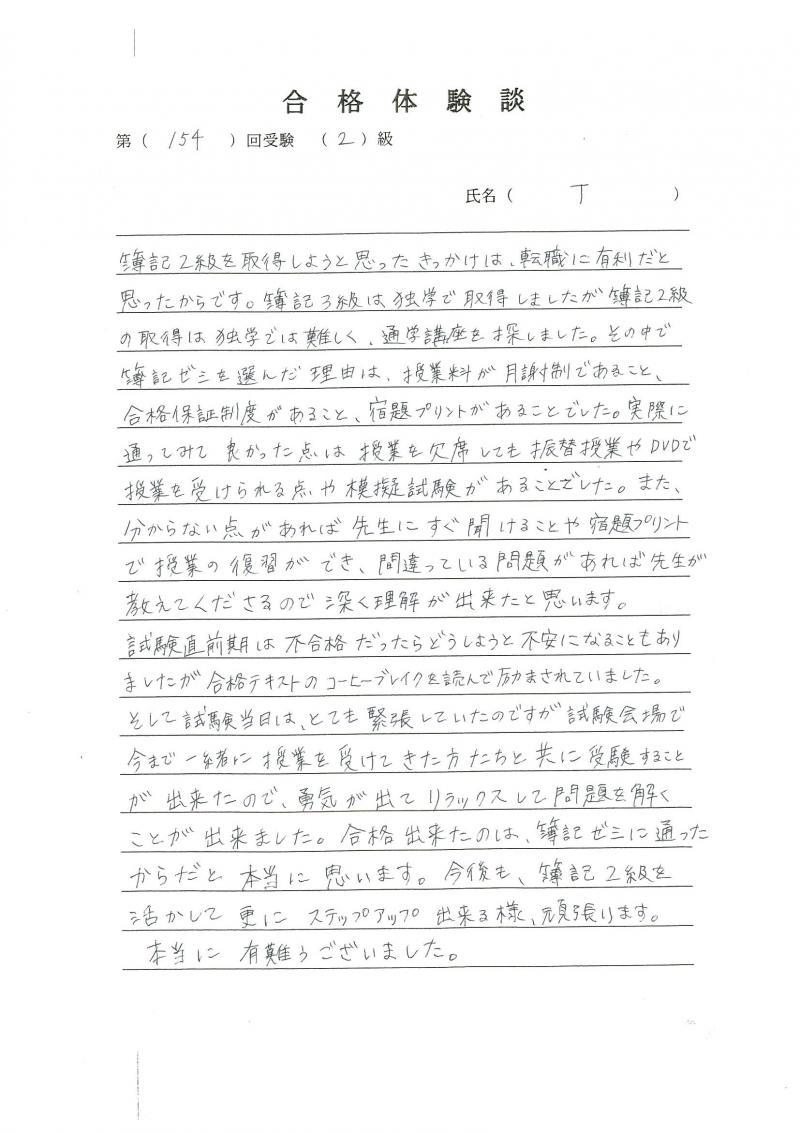 合格体験談
第（ 154 ）回受験 （ 2 ）級
氏名（ T ）
簿記2級を取得しようと思ったきっかけは、転職に有利だと
思ったからです。簿記3級は独学で取得しましたが簿記2級
の取得は独学では難しく、通学講座を探しました。その中で
簿記ゼミを選んだ理由は、授業料が月謝制であること、
合格保証制度があること、宿題プリントがあることでした。実際に
通ってみて良かった点は授業を欠席しても振替授業やDVDで
授業を受けられる点や模擬試験があることでした。また、
分からない点があれば先生にすぐ聞けることや宿題プリント
で授業の復習ができ、間違っている問題があれば先生が
教えてくださるので深く理解が出来たと思います。
試験直前期は不合格だったらどうしようと不安になることもあり
ましたが合格テキストのコーヒーブレイクを読んで励まされていました。
そして試験当日は、とても緊張していたのですが試験会場で
今まで一緒に授業を受けてきた方たちと共に受験すること
が出来たので、勇気が出てリラックスして問題を解く
ことが出来ました。合格出来たのは、簿記ゼミに通った
からだと本当に思います。今後も、簿記2級を
活かして更にステップアップ出来る様、頑張ります。
本当に有難うございました。